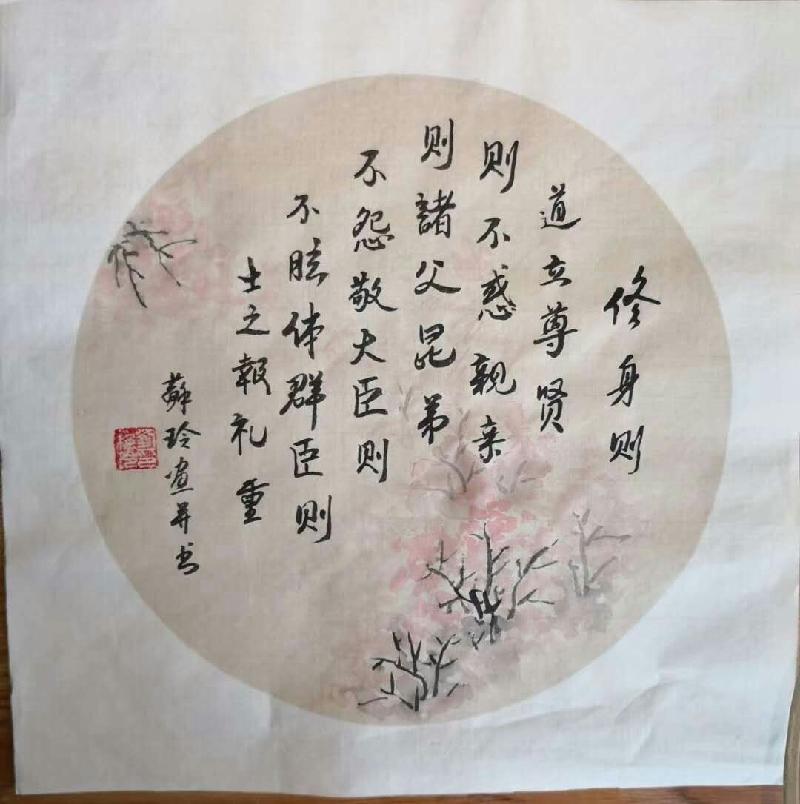 修身则
道立尊贤
则不惑親亲
则諸父昆弟
不怨敬大臣则
不眩体群臣则
士之報礼重
蘇玲画并书